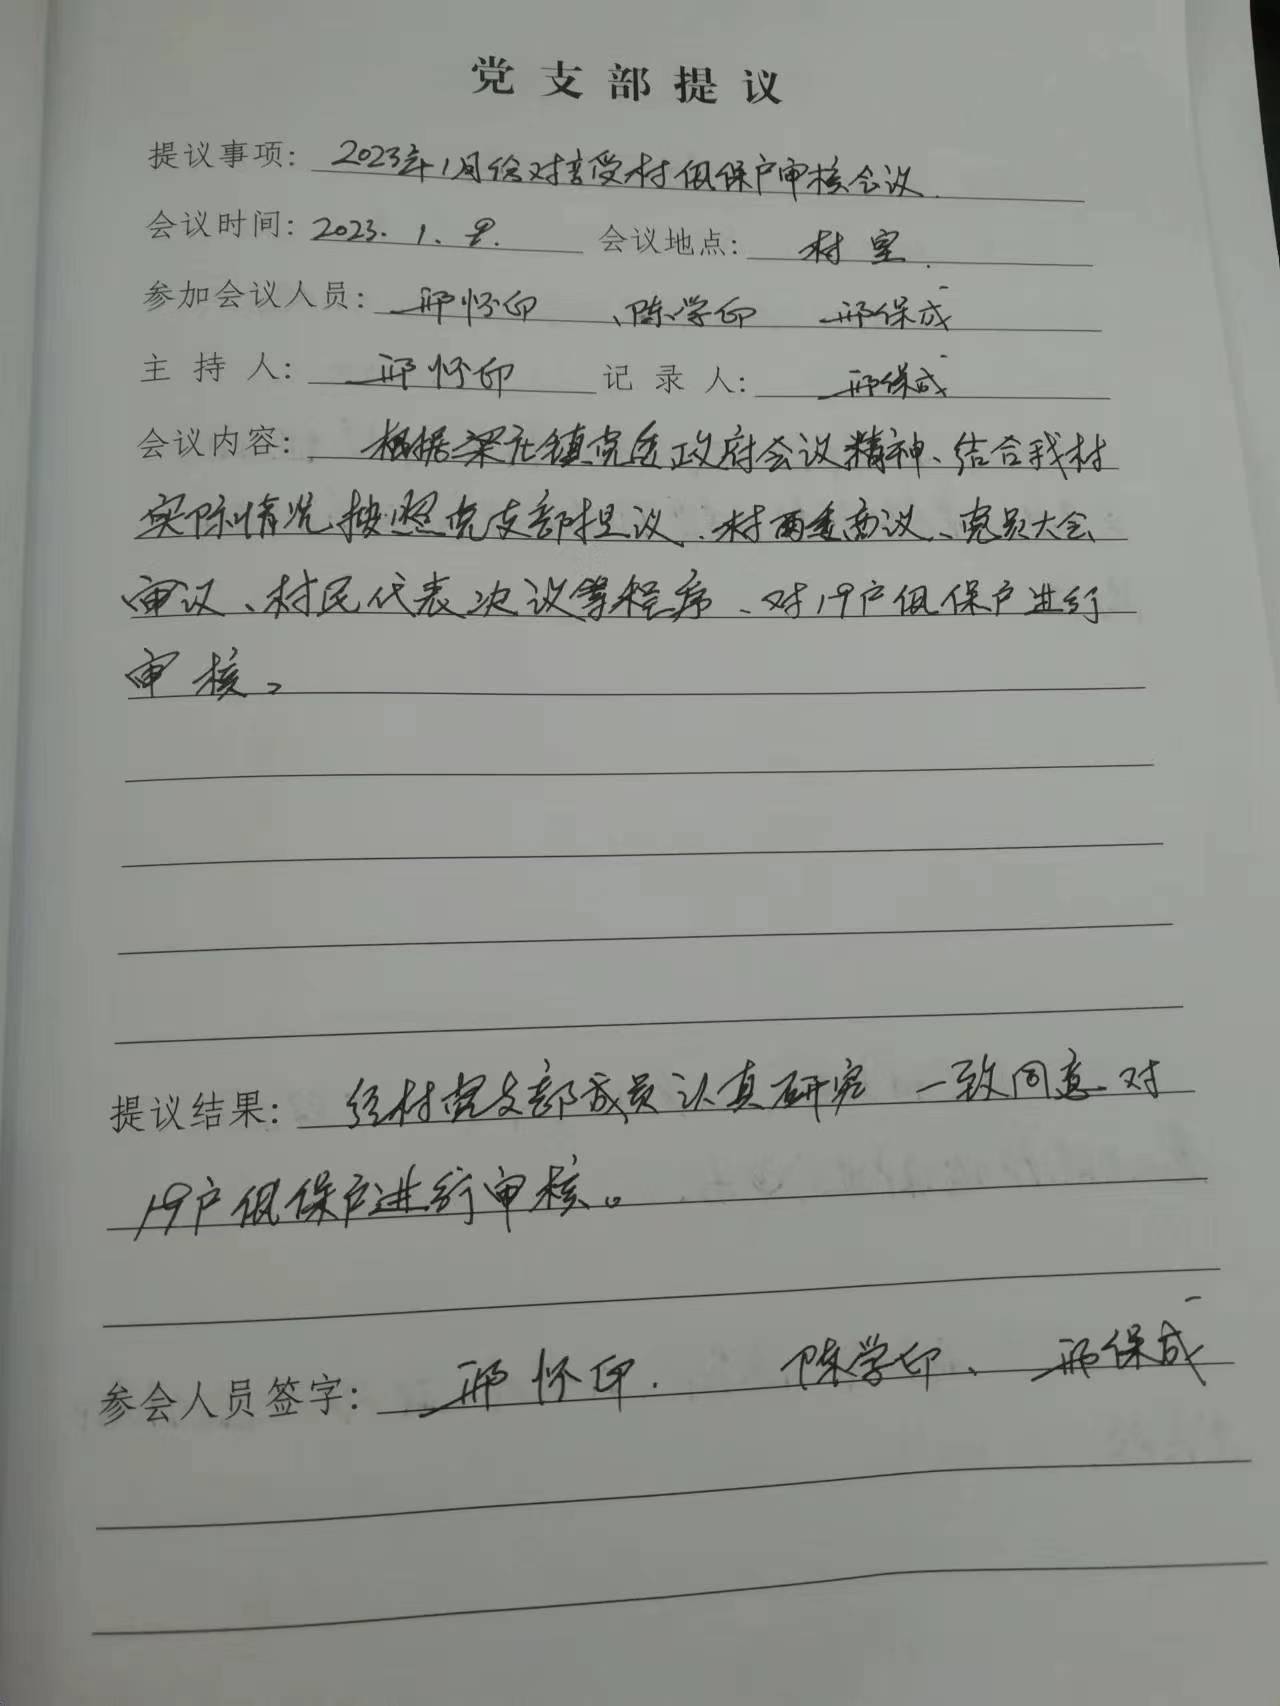 党支部提议
提议事项: 2023年1月份对享受村低保户审核会议.
会议时间: 2023. 1. 9. 会议地点: 村室.
参加会议人员: 邢怀印 、陈学印 邢保成
主持人: 邢怀印 记录人: 邢保成
会议内容: 根据梁庄镇党委政府会议精神、结合我村
实际情况按照党支部提议、村两委商议、党员大会
审议、村民代表决议等程序、对19户低保户进行
审核。
提议结果: 经村党支部成员认真研究 一致同意对
19户低保户进行审核。
参会人员签字: 邢怀印. 陈学印、邢保成